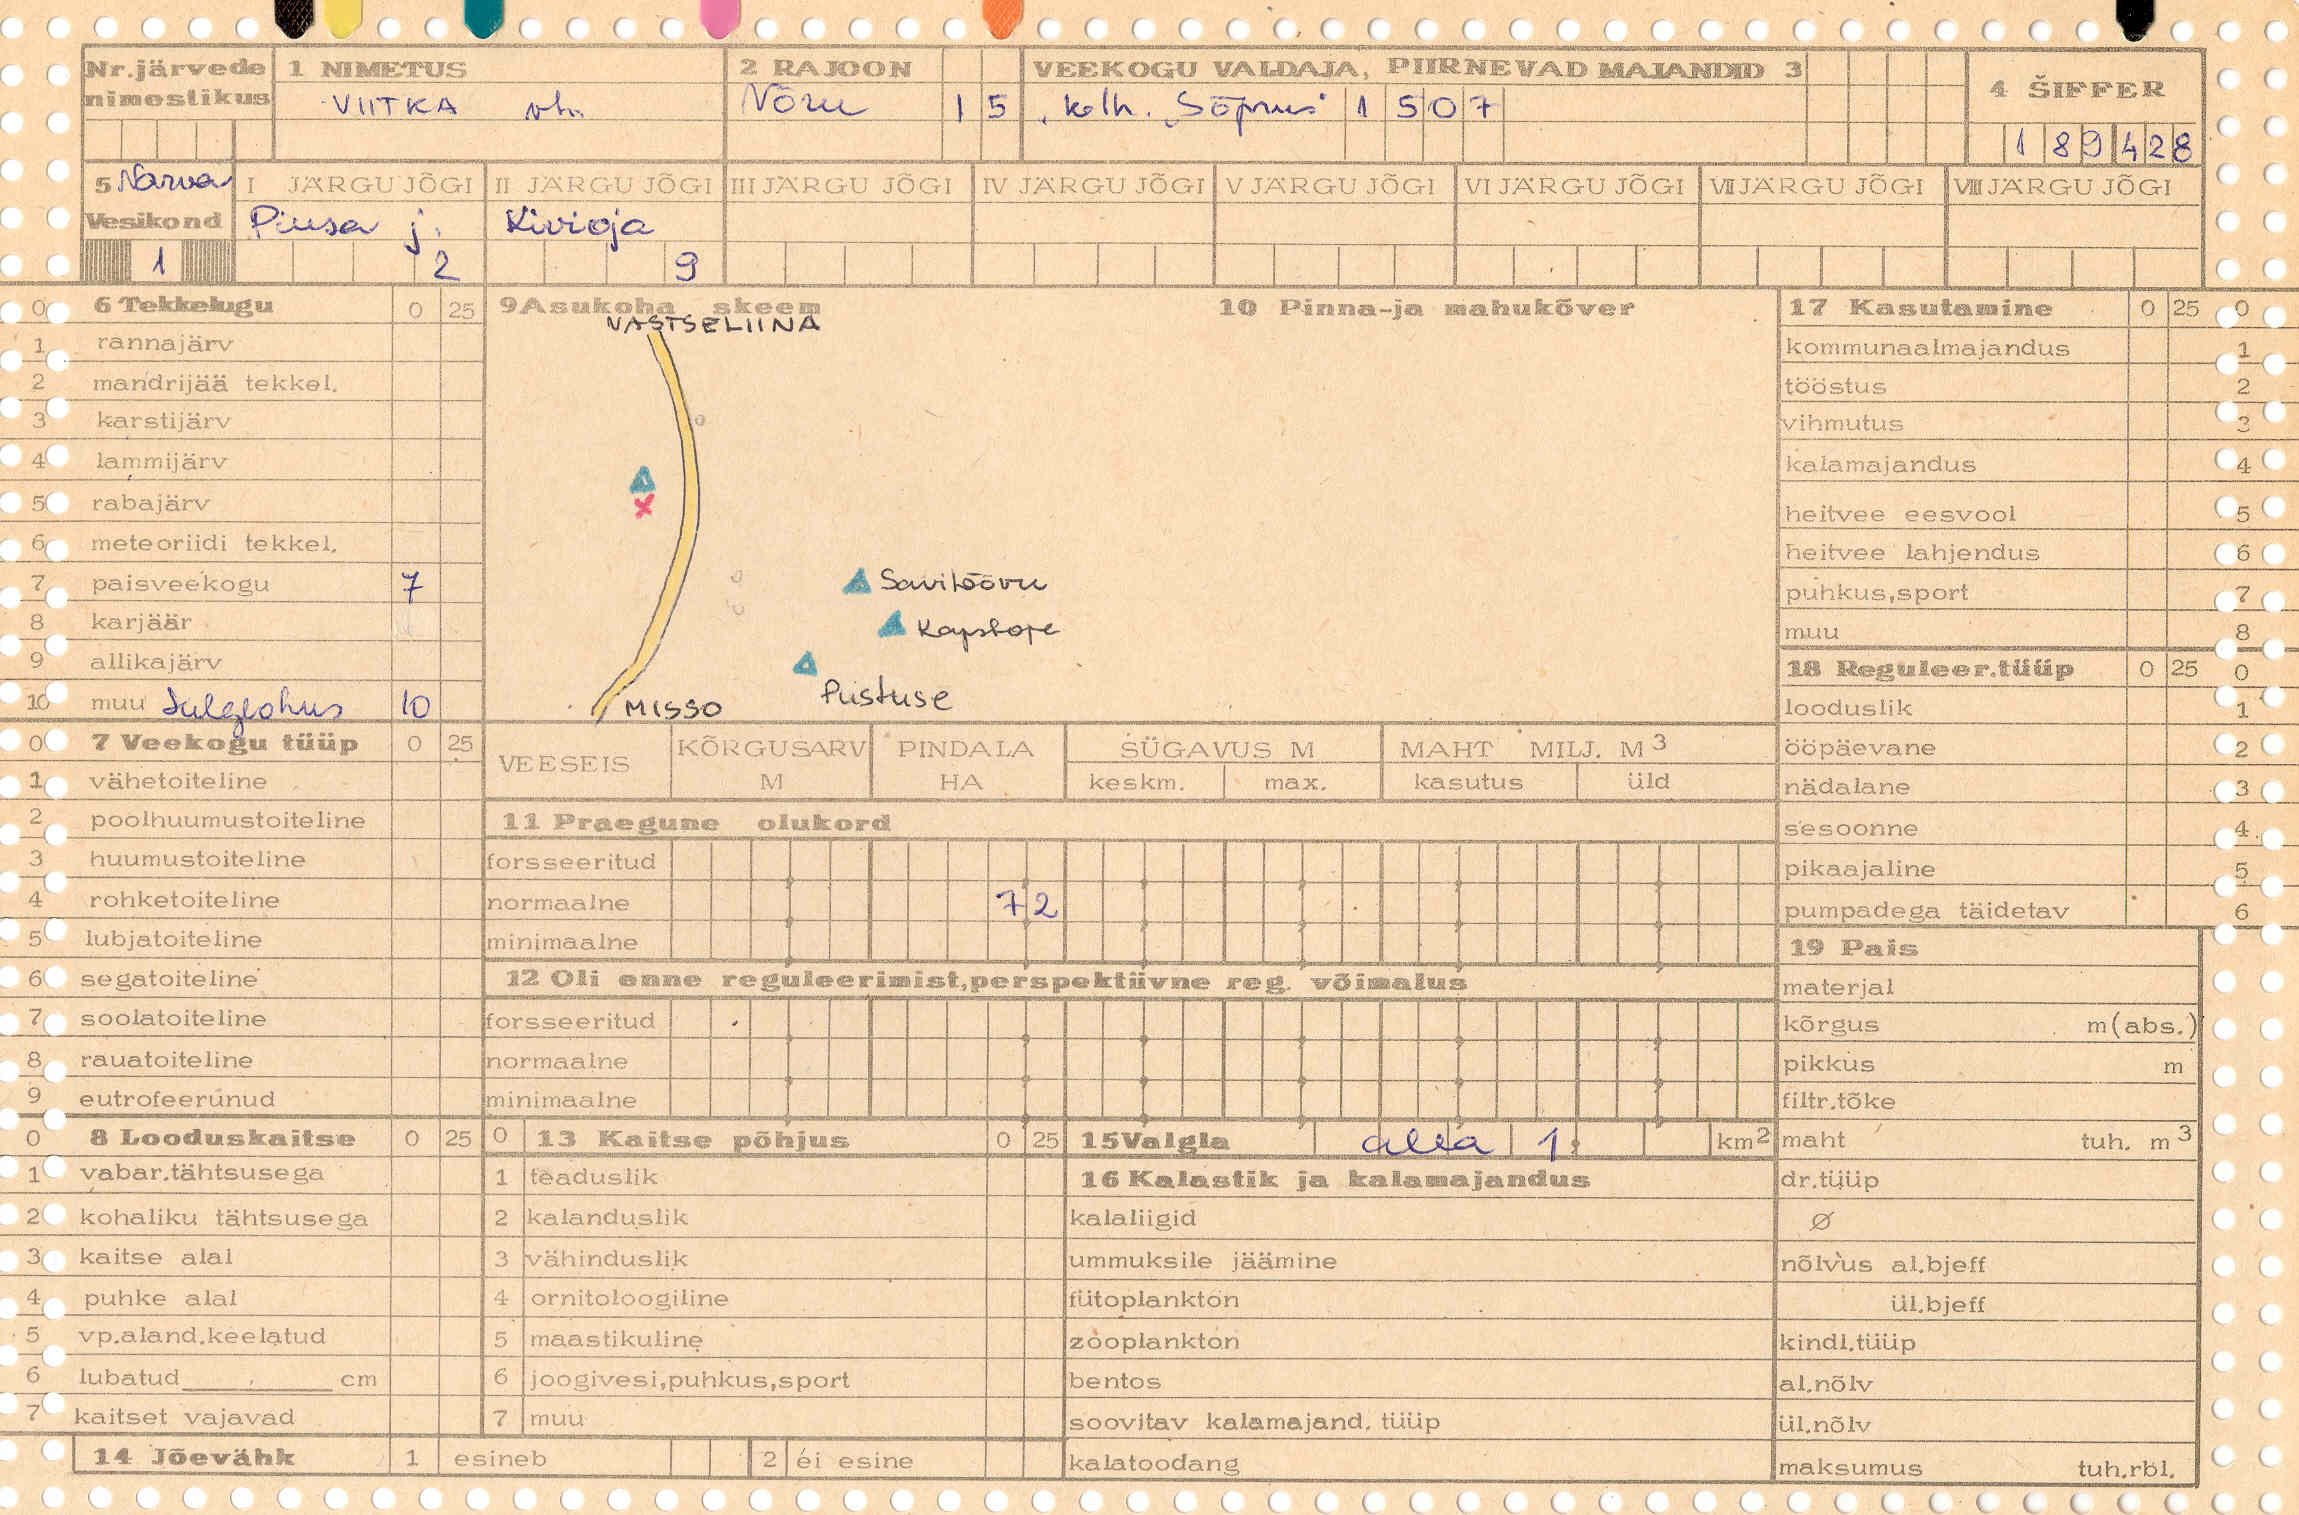 Nr.järvede nimestikus
1 NIMETUS
VIITKA vh.
2 RAJOON
Võru 15
VEEKOGU VALDAJA, PIIRNEVAD MAJANDID 3
kolh. „Sõprus" 1507
4 ŠIFFER
189428
5 Narva
Vesikond
1
I JÄRGU JÕGI
Piusa j.
2
II JÄRGU JÕGI
Kivioja
9
III JÄRGU JÕGI
IV JÄRGU JÕGI
V JÄRGU JÕGI
VI JÄRGU JÕGI
VII JÄRGU JÕGI
VIII JÄRGU JÕGI
0 6 Tekkelugu 0 25
1 rannajärv
2 mandrijää tekkel.
3 karstijärv
4 lammijärv
5 rabajärv
6 meteoriidi tekkel.
7 paisveekogu 7
8 karjäär
9 allikajärv
10 muu Sulglohus 10
0 7 Veekogu tüüp 0 25
1 vähetoiteline
2 poolhuumustoiteline
3 huumustoiteline
4 rohketoiteline
5 lubjatoiteline
6 segatoiteline
7 soolatoiteline
8 rauatoiteline
9 eutrofeerunud
0 8 Looduskaitse 0 25
1 vabar.tähtsusega
2 kohaliku tähtsusega
3 kaitse alal
4 puhke alal
5 vp.aland.keelatud
6 lubatud cm
7 kaitset vajavad
14 Jõevähk 1 esineb 2 ei esine
9 Asukoha skeem
VASTSELIINA
Savitöövu
Kapstope
Pustuse
MISSO
10 Pinna-ja mahukõver
VEESEIS
KÕRGUSARV M
PINDALA HA
SÜGAVUS M
keskm. max.
MAHT MILJ. M3
kasutus üld
11 Praegune olukord
forsseeritud
normaalne 72
minimaalne
12 Oli enne reguleerimist,perspektiivne reg. võimalus
forsseeritud
normaalne
minimaalne
0 13 Kaitse põhjus 0 25
1 teaduslik
2 kalanduslik
3 vähinduslik
4 ornitoloogiline
5 maastikuline
6 joogivesi,puhkus,sport
7 muu
15 Valgla alla 1 km2
16 Kalastik ja kalamajandus
kalaliigid
ummuksile jäämine
fütoplankton
zooplankton
bentos
soovitav kalamajand. tüüp
kalatoodang
17 Kasutamine 0 25 0
kommunaalmajandus 1
tööstus 2
vihmutus 3
kalamajandus 4
heitvee eesvool 5
heitvee lahjendus 6
puhkus,sport 7
muu 8
18 Reguleer.tüüp 0 25 0
looduslik 1
ööpäevane 2
nädalane 3
sesoonne 4
pikaajaline 5
pumpadega täidetav 6
19 Pais
materjal
kõrgus m(abs.)
pikkus m
filtr.tõke
maht tuh. m3
dr.tüüp
Ø
nõlvus al.bjeff
ül.bjeff
kindl.tüüp
al.nõlv
ül.nõlv
maksumus tuh.rbl.